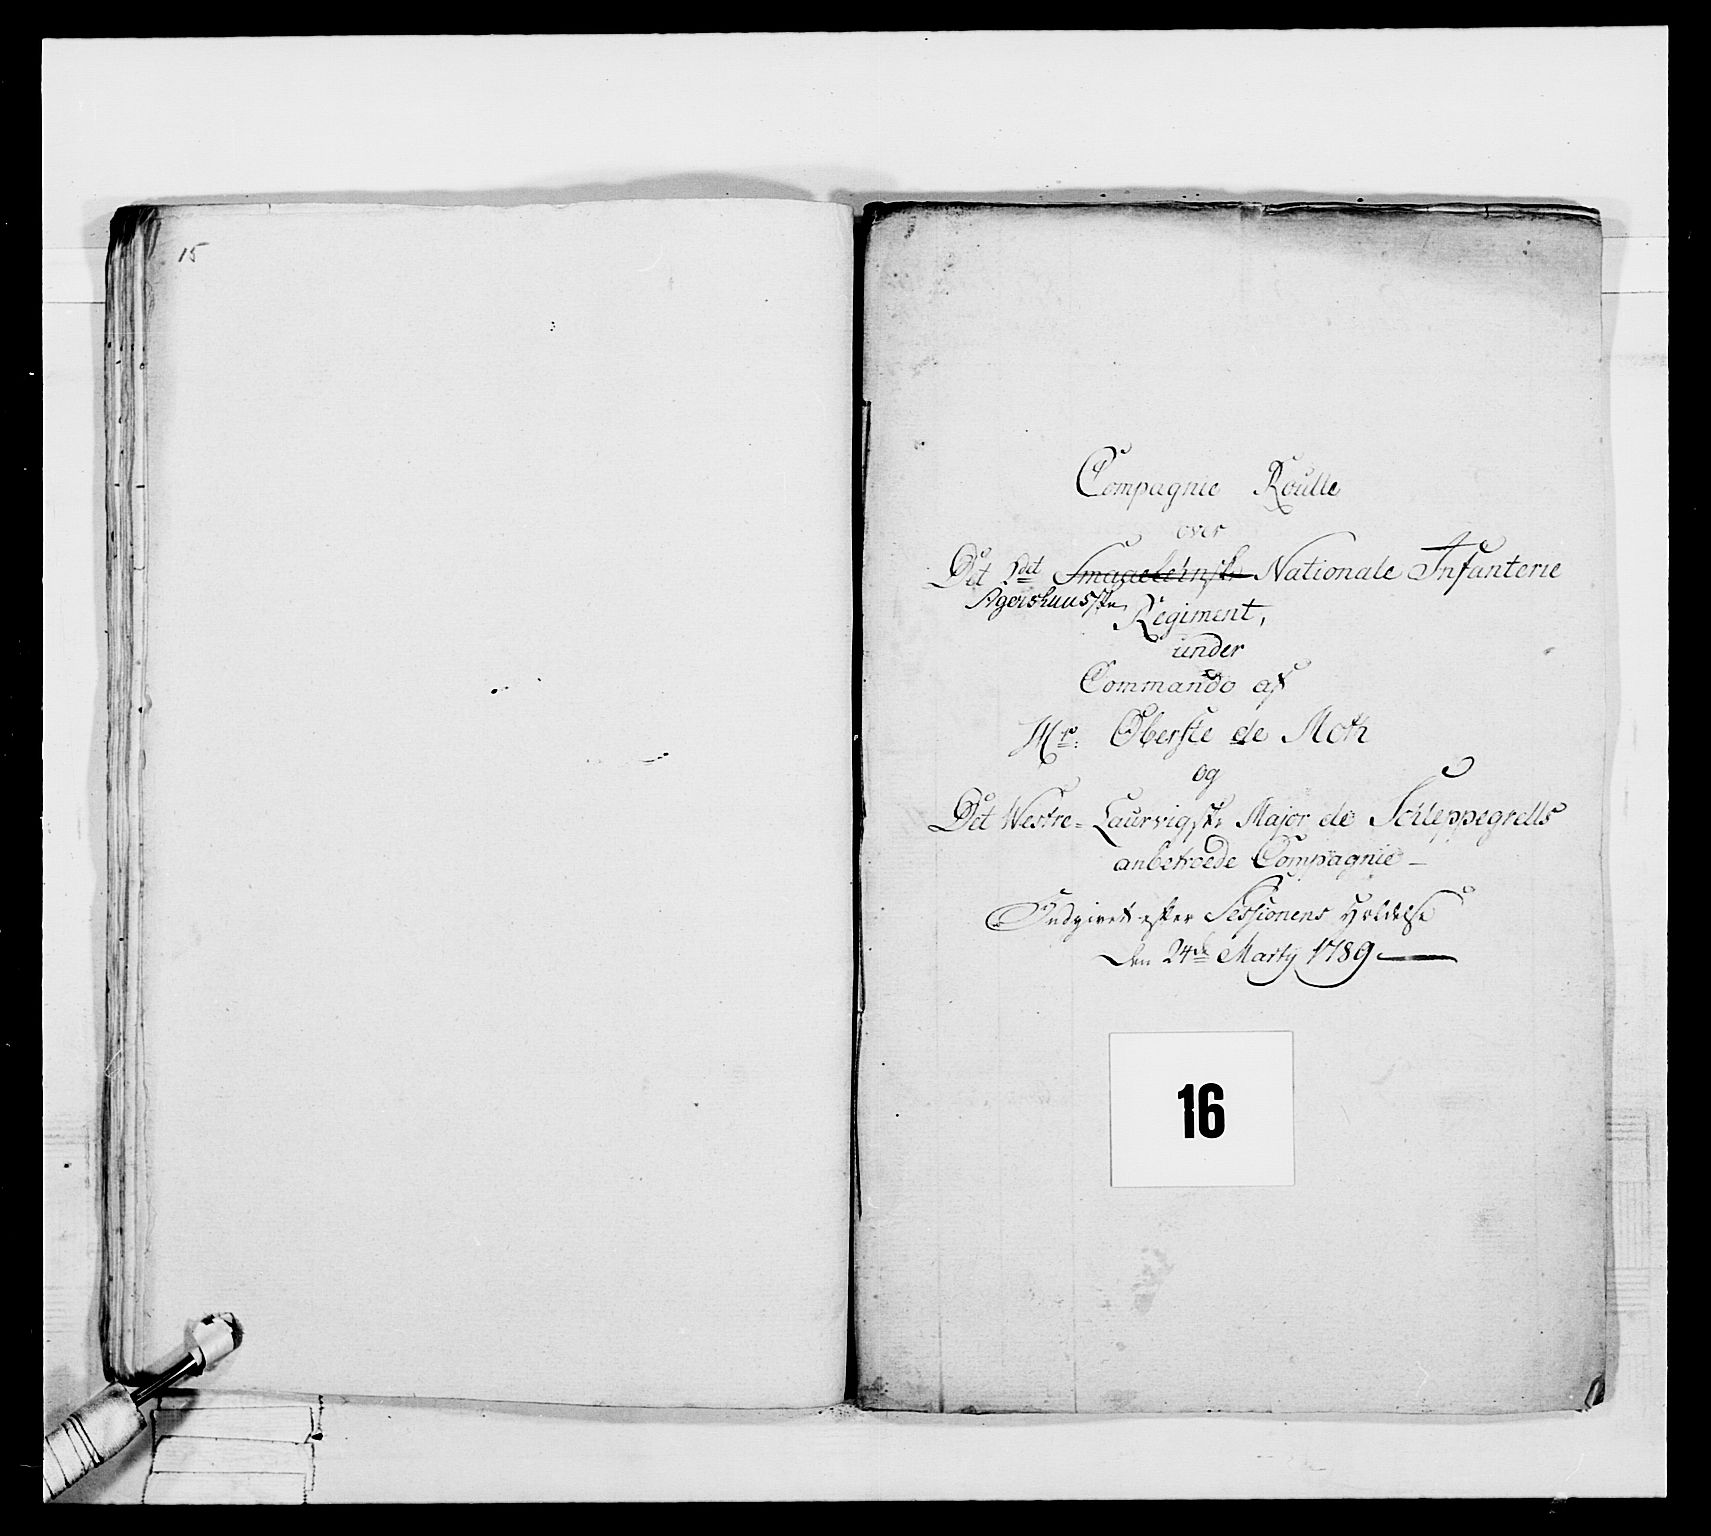 15
Compagnie Roulle
over
Det 2det Smaalehnske Nationale Infanterie
Agershuusske
Regiment,
under
Commando af
Hr: Oberste de Moth
og
Det Westre-Laurvigske Major de Schleppegrells
anbetroede Compagnie -
Indgivet efter Sessionens Holdelse
den 24de Martij 1789
16